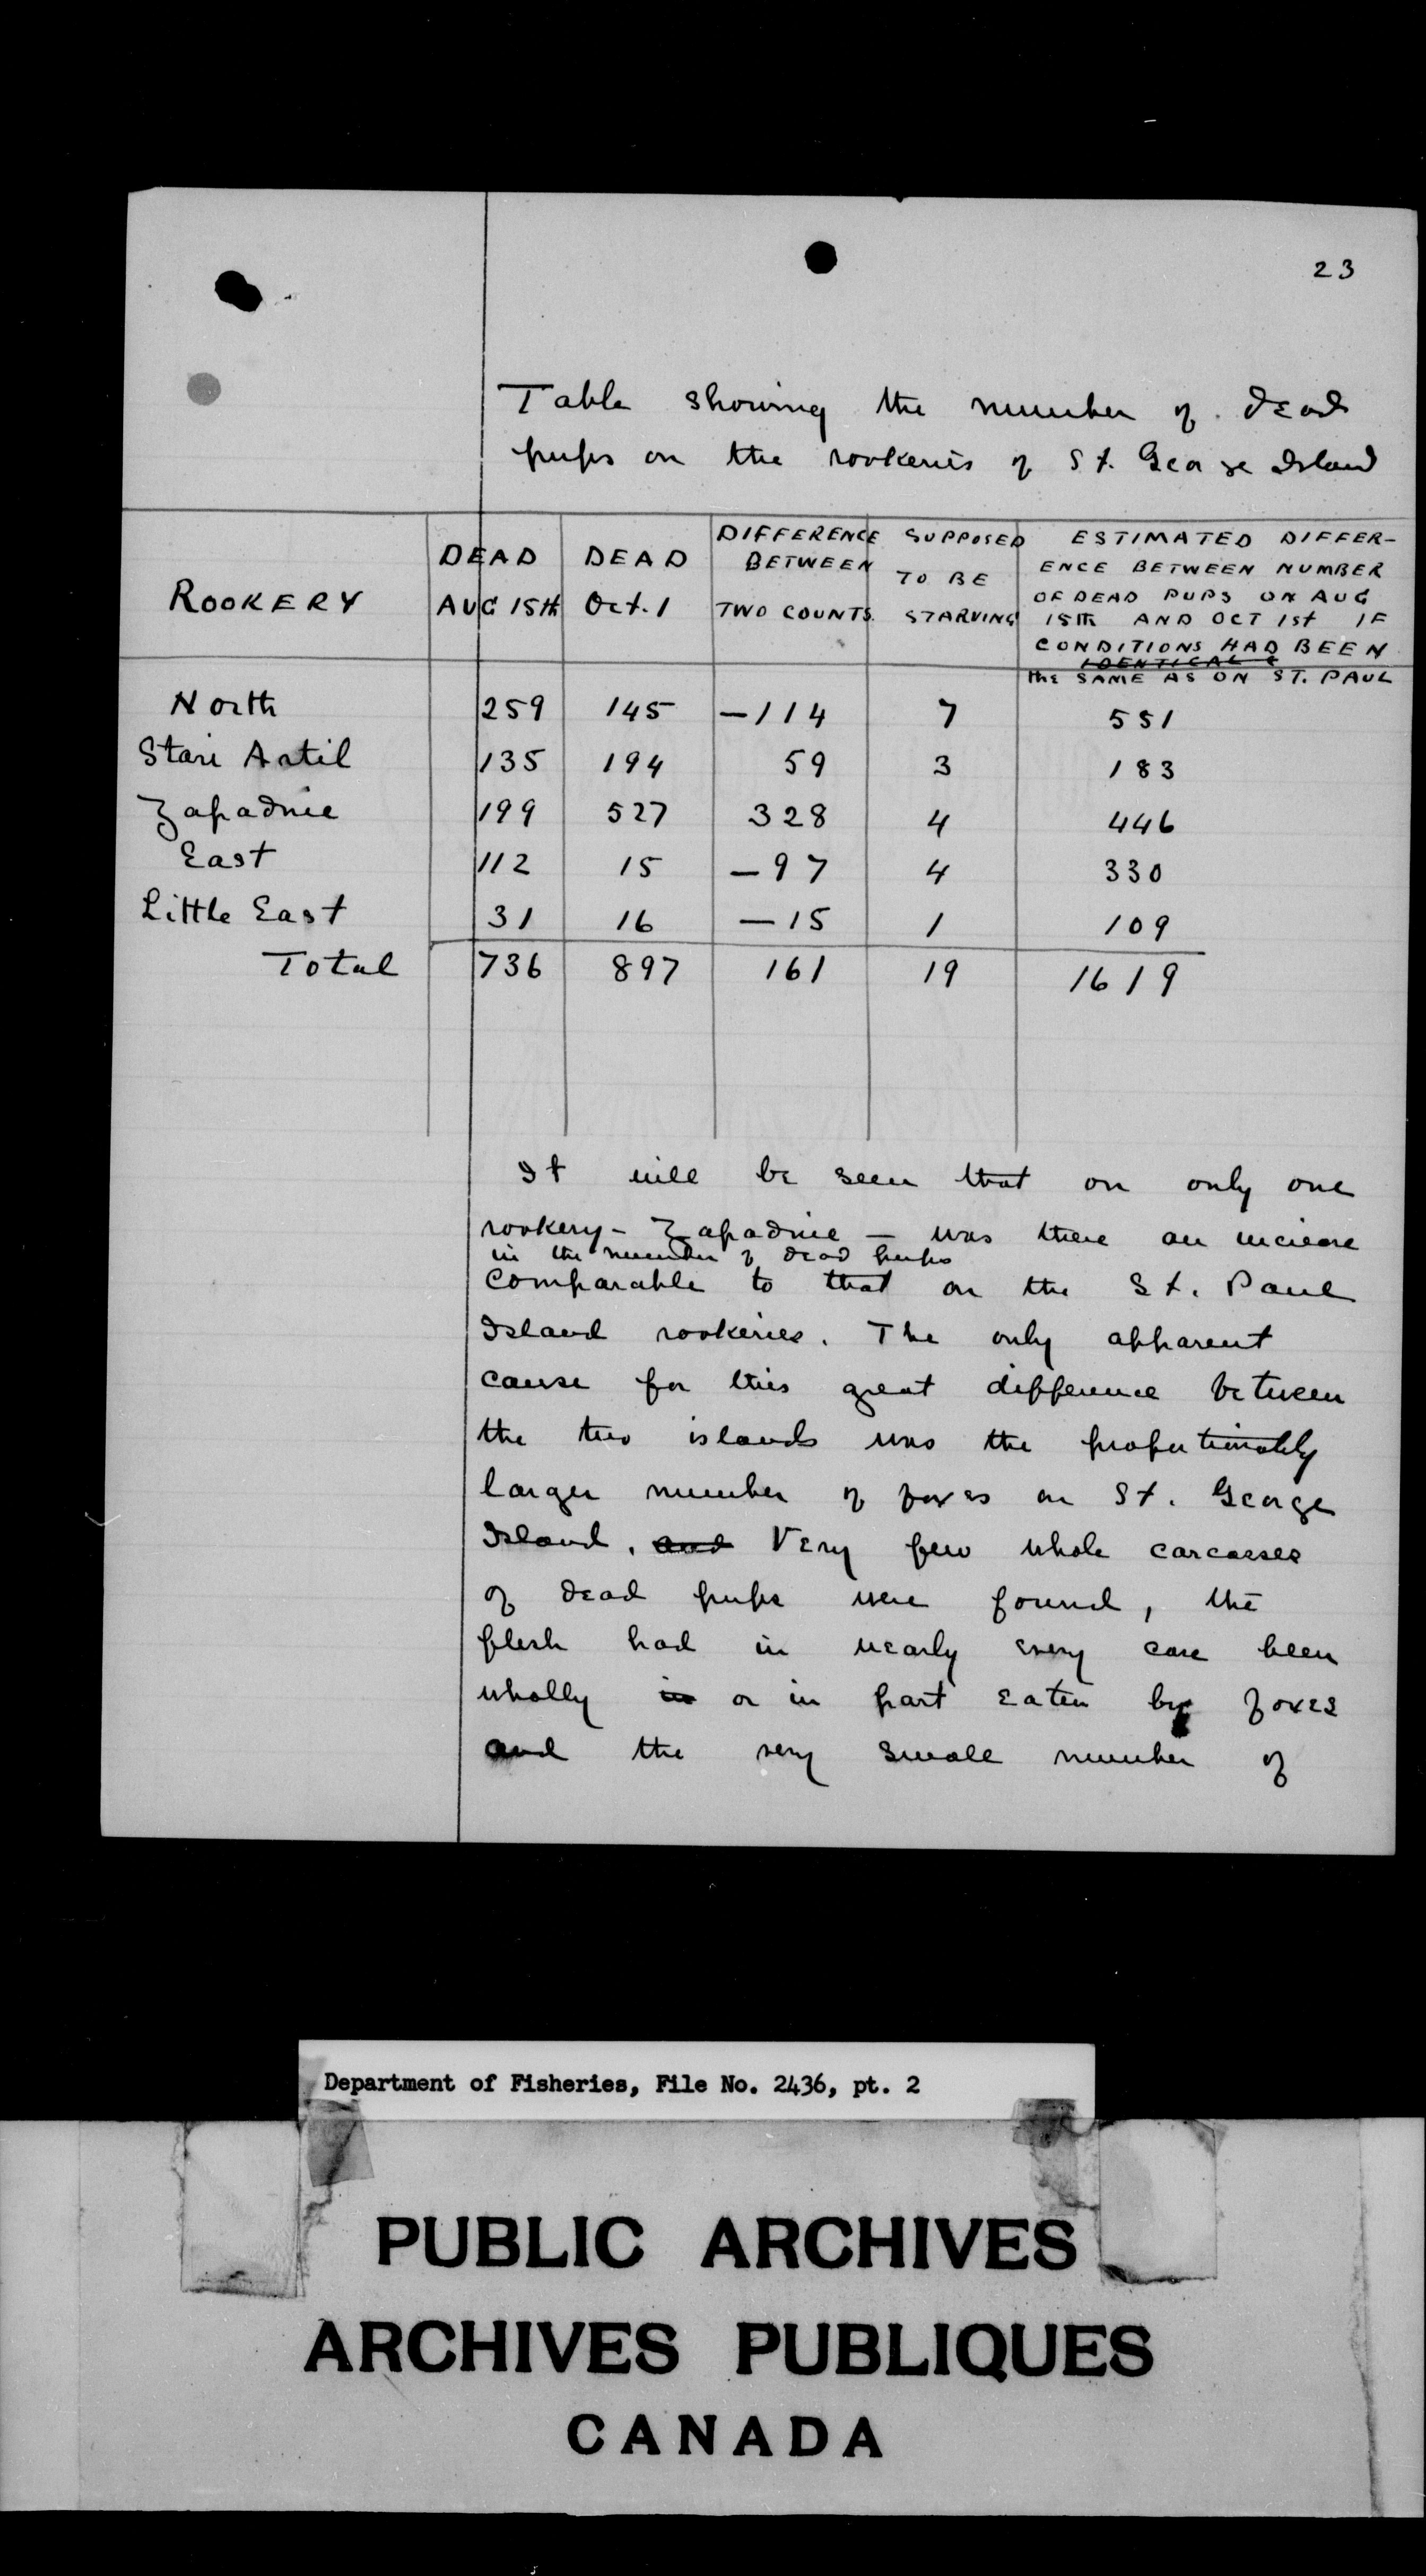 23
Table showing the number of dead
pups on the rookeries of St. George Island
ROOKERY | DEAD AUG 15th | DEAD Oct. 1 | DIFFERENCE BETWEEN TWO COUNTS. | SUPPOSED TO BE STARVING | ESTIMATED DIFFERENCE BETWEEN NUMBER OF DEAD PUPS ON AUG 15th AND OCT 1st IF CONDITIONS HAD BEEN IDENTICAL the SAME AS ON ST. PAUL
North 259 145 —114 7 551
Stari Artil 135 194 59 3 183
Zapadnie 199 527 328 4 446
East 112 15 —97 4 330
Little East 31 16 —15 1 109
Total 736 897 161 19 1619
It will be seen that on only one
rookery - Zapadnie — was there an increase
in the number of dead pups
comparable to that on the St. Paul
Island rookeries. The only apparent
cause for this great difference between
the two islands was the proportionately
larger number of foxes on St. George
Island. and Very few whole carcasses
of dead pups were found, the
flesh had in nearly every case been
wholly in or in part eaten by foxes
and the very small number of
Department of Fisheries, File No. 2436, pt. 2
PUBLIC ARCHIVES
ARCHIVES PUBLIQUES
CANADA